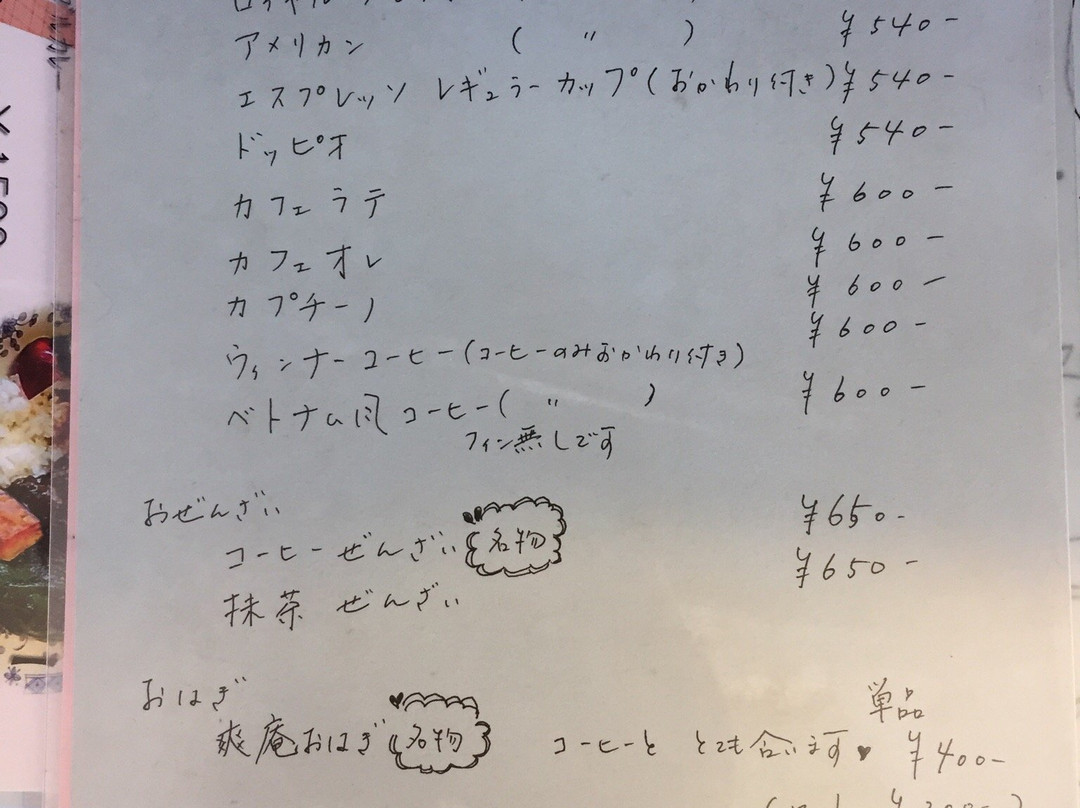 アメリカン ( 〃 ) ¥540-
エスプレッソ レギュラーカップ(おかわり付き) ¥540-
ドッピオ ¥540-
カフェラテ ¥600-
カフェオレ ¥600-
カプチーノ ¥600-
ウィンナーコーヒー(コーヒーのみおかわり付き) ¥600-
ベトナム風コーヒー( 〃 ) ¥600-
フィン無しです
おぜんざい
コーヒーぜんざい 名物 ¥650-
抹茶ぜんざい ¥650-
おはぎ
単品
爽庵おはぎ 名物 コーヒーと とても合います♥ ¥400-